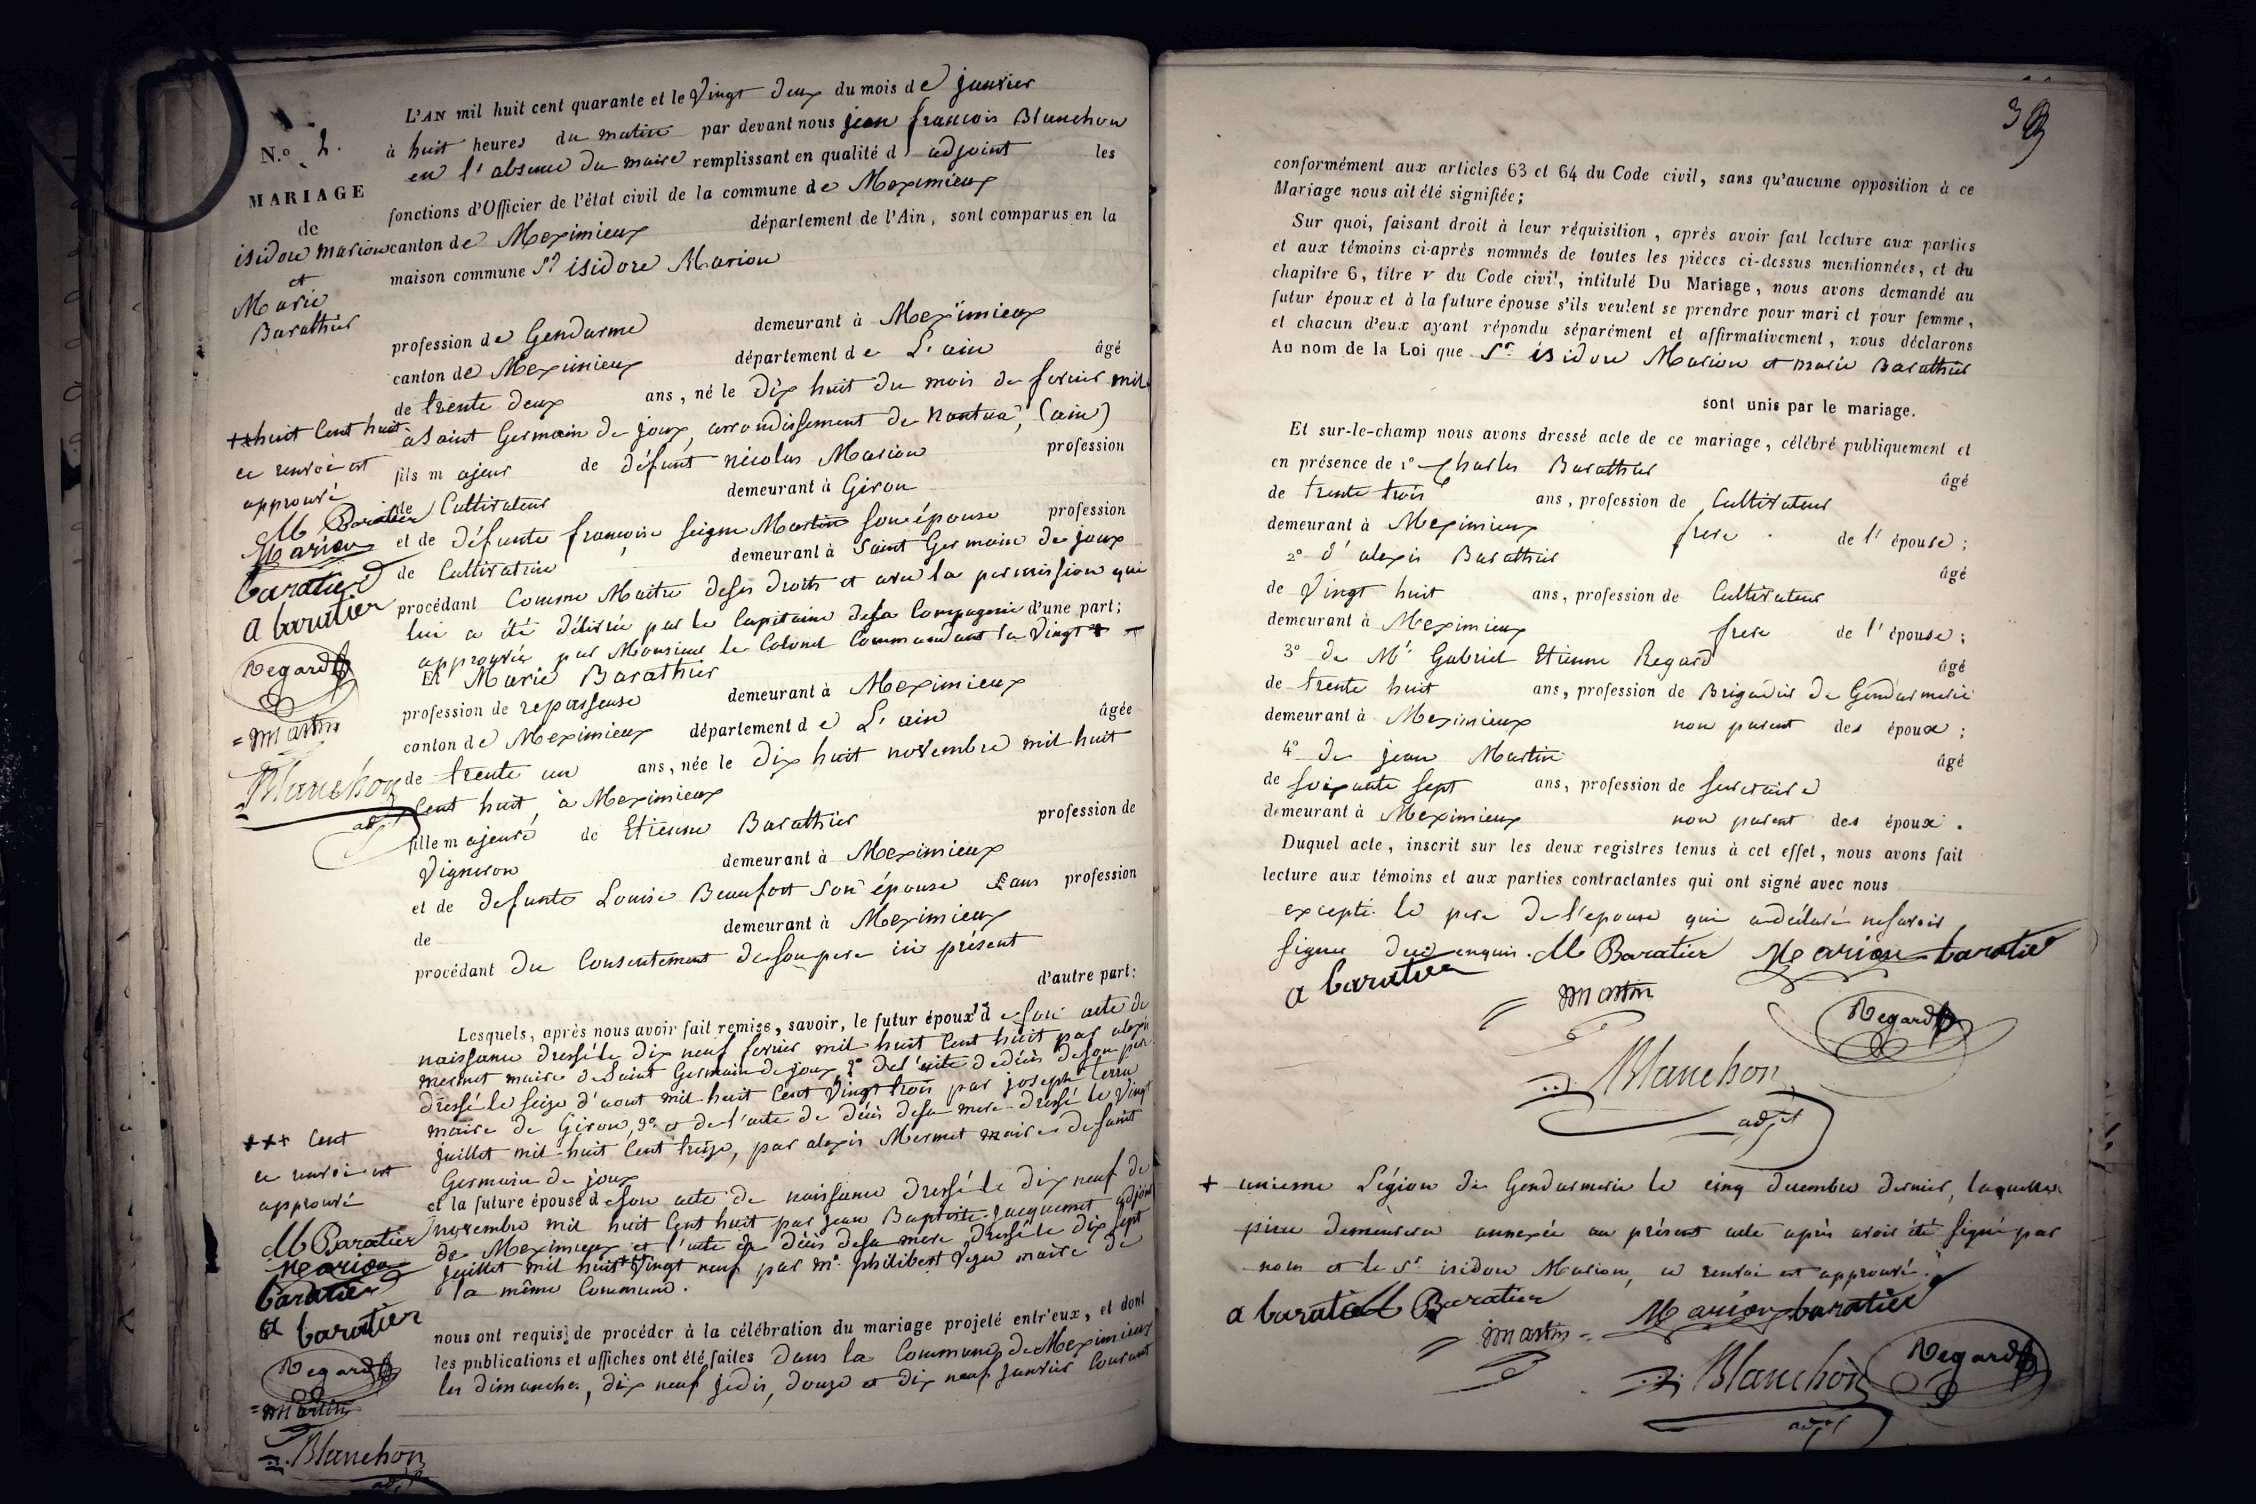 N.º 2.
MARIAGE
de
isidore marion
et
Marie
Barathier
L'AN mil huit cent quarante et le Vingt deux du mois de janvier
à huit heures du matin par devant nous jean françois Blanchon
en l'absence du maire remplissant en qualité d'adjoint les
fonctions d'Officier de l'état civil de la commune de Meximieux
canton de Meximieux département de l'Ain, sont comparus en la
maison commune Sr isidore Marion
profession de Gendarme demeurant à Meximieux
canton de Meximieux département de L'ain âgé
de trente deux ans, né le dix huit du mois de fevrier mil
++huit Cent huit
ce renvoi est
approuvé
M Baratier
Marion
baratier
a baratier
Regard
=martin
Blanchon
adjt
à Saint Germain de joux, arrondissement de Nantua, (ain)
fils majeur de défunt nicolas Marion profession
de Cultivateur demeurant à Giron
et de défunte françoise seigne Martin son épouse profession
de Cultivatrice demeurant à Saint Germain de joux
procédant Comme Maitre de ses droits et avec la permission qui
lui a été délivrée par le Capitaine de sa Compagnie d'une part;
approuvée par Monsieur le Colonel Commandant la Vingt +
Et Marie Barathier
profession de repasseuse demeurant à Meximieux
canton de Meximieux département de L'ain âgée
de trente un ans, née le dix huit novembre mil huit
Cent huit, à Meximieux
fille majeure de Etienne Barathier profession de
Vigneron demeurant à Meximieux
et de defunte Louise Beaufort son épouse sans profession
de demeurant à Meximieux
procédant du Consentement de son pere ici présent
d'autre part:
Lesquels, après nous avoir fait remise, savoir, le futur époux 1º de son acte de
naissance dressé le dix neuf fevrier mil huit Cent huit par alexis
mermet maire de Saint Germain de joux 2º de l'acte de décès de son pere
dressé le seize d'aout mil huit Cent Vingt trois par joseph terra
maire de Giron, 3º et de l'acte de décès de sa mere dressé le Vingt
juillet mil huit Cent treize, par alexis Mermet maire de saint
Germain de joux
et la future épouse de son acte de naissance dressé le dix neuf de
novembre mil huit Cent huit par jean Baptiste jacquemet adjoint
de Meximieux et l'acte de décès de sa mere dressé le dix sept
juillet mil huit +++ Vingt neuf par Mr. philibert maire de
la même Commune.
+++ Cent
ce renvoi est
approuvé
M Baratier
Marion
baratier
a baratier
Regard
=martin
Blanchon
adjt
nous ont requis de procéder à la célébration du mariage projeté entr'eux, et dont
les publications et affiches ont été faites dans la Commune de Meximieux
les dimanches, dix neuf jedis, douze et dix neuf janvier Courant
conformément aux articles 63 et 64 du Code civil, sans qu'aucune opposition à ce
Mariage nous ait été signifiée;
Sur quoi, faisant droit à leur réquisition, après avoir fait lecture aux parties
et aux témoins ci-après nommés de toutes les pièces ci-dessus mentionnées, et du
chapitre 6, titre v du Code civil, intitulé Du Mariage, nous avons demandé au
futur époux et à la future épouse s'ils veulent se prendre pour mari et pour femme,
et chacun d'eux ayant répondu séparément et affirmativement, nous déclarons
Au nom de la Loi que Sr. isidore Marion et marie Barathier
sont unis par le mariage.
Et sur-le-champ nous avons dressé acte de ce mariage, célébré publiquement et
en présence de 1º Charles Barathier âgé
de trente trois ans, profession de Cultivateur
demeurant à Meximieux frere de l'épouse;
2º d'alexis Barathier âgé
de Vingt huit ans, profession de Cultivateur
demeurant à Meximieux frere de l'épouse;
3º de Mr. Gabriel Etienne Regard âgé
de trente huit ans, profession de Brigadier de Gendarmerie
demeurant à Meximieux non parent des époux;
4º de jean Martin âgé
de soixante sept ans, profession de secretaire
demeurant à Meximieux non parent des époux.
Duquel acte, inscrit sur les deux registres tenus à cet effet, nous avons fait
lecture aux témoins et aux parties contractantes qui ont signé avec nous
excepté le pere de l'épouse qui a déclaré ne savoir
signer de ce enquis. M Baratier Marion baratier
a baratier
martin
Regard
Blanchon
adjt
+ unieme Légion de Gendarmerie le cinq decembre dernier, laquelle
piece demeurera annexée au présent acte après avoir été signé par
nous et le Sr. isidore Marion, ce renvoi est approuvé.
a baratier M Baratier Marion baratier
martin = Blanchon Regard
adjt